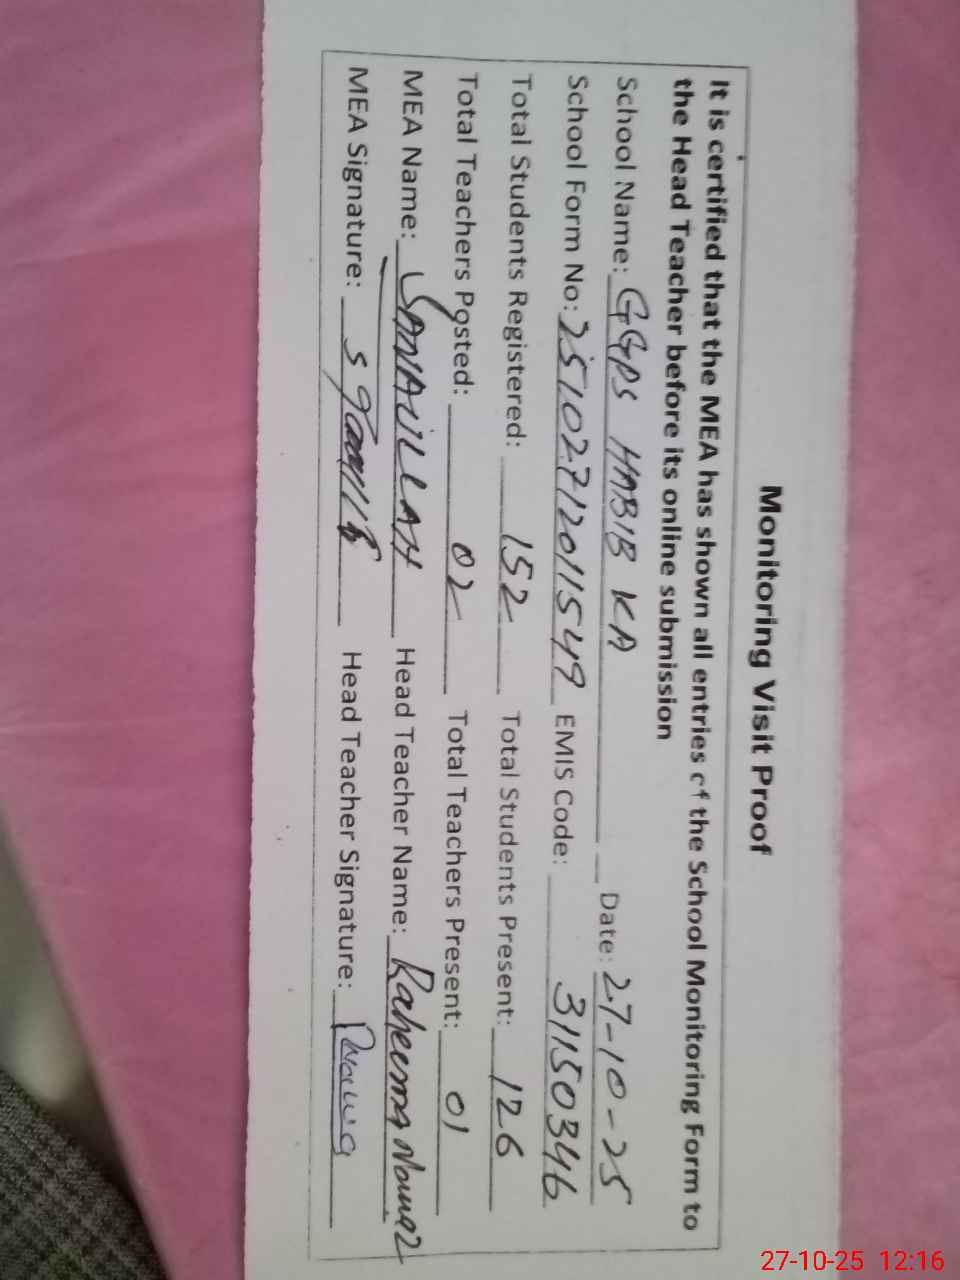 Monitoring Visit Proof
It is certified that the MEA has shown all entries of the School Monitoring Form to
the Head Teacher before its online submission
School Name: GGPS HABIB KA Date: 27-10-25
School Form No: 25102712011549 EMIS Code: 31150346
Total Students Registered: 152 Total Students Present: 126
Total Teachers Posted: 02 Total Teachers Present: 01
MEA Name: SANAULLAH Head Teacher Name: Raheema
MEA Signature: Head Teacher Signature:
27-10-25 12:16